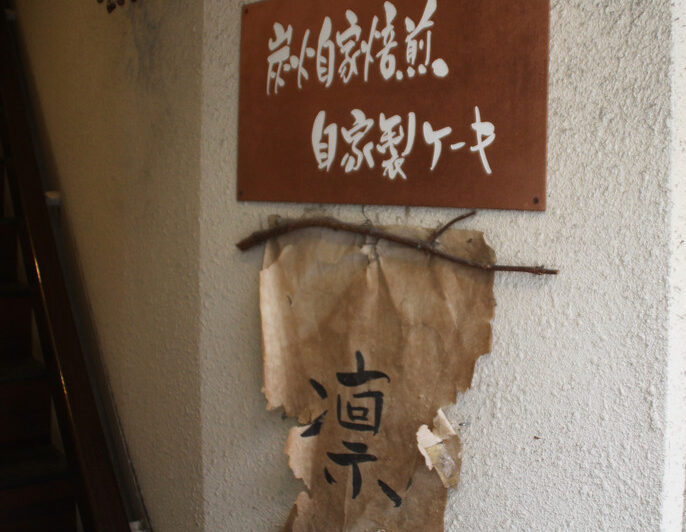 炭火自家焙煎
自家製ケーキ
凛